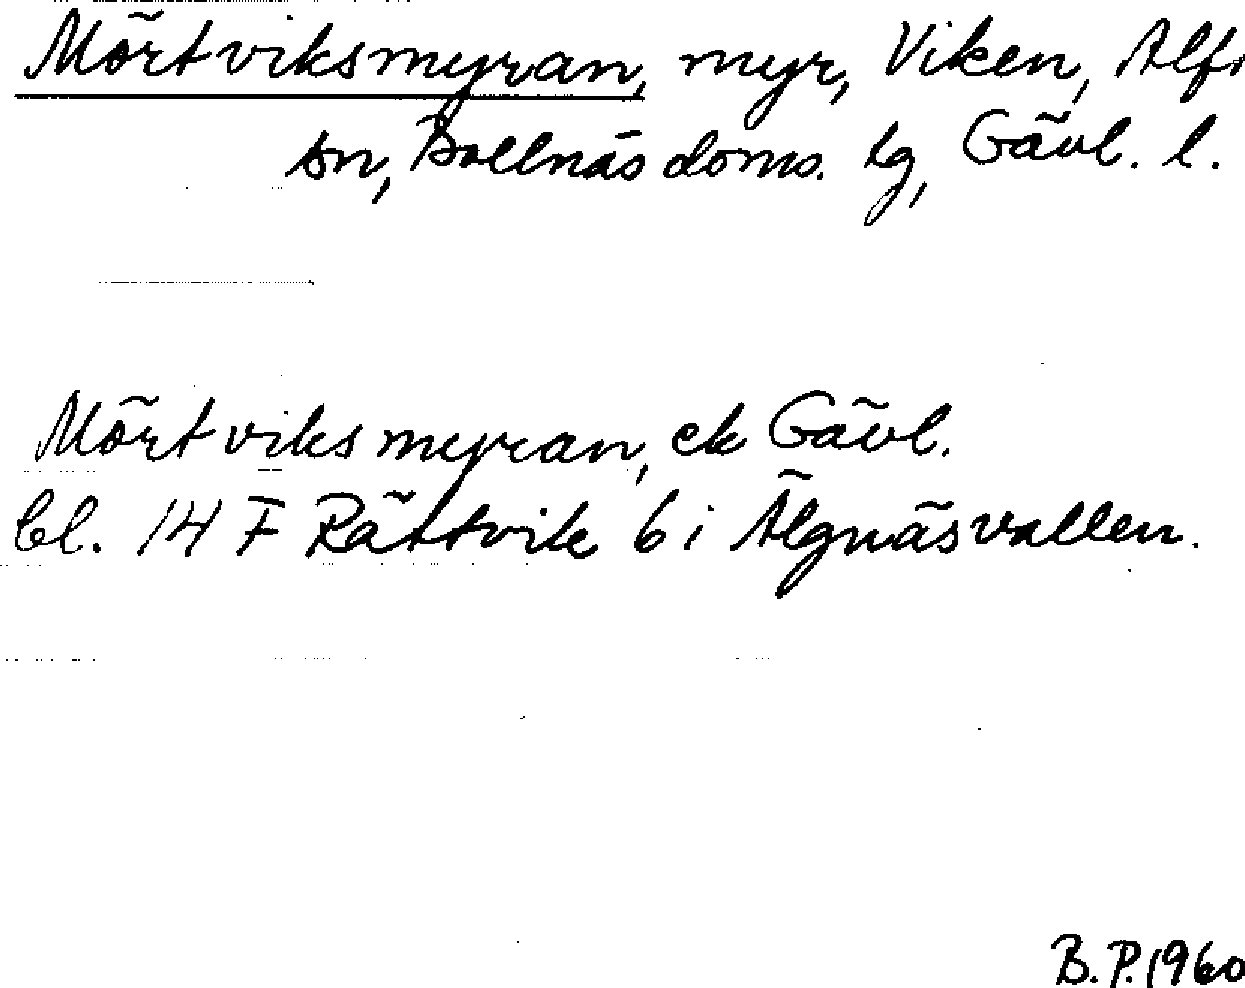 Mörtviksmyran, myr, Viken, Alf
sn, Bollnäs doms. lg, Gävl. l.
Mörtviksmyran, ek Gävl.
bl. 14 F Rättvik 6 i Älgnäsvallen.
B.P. 1960